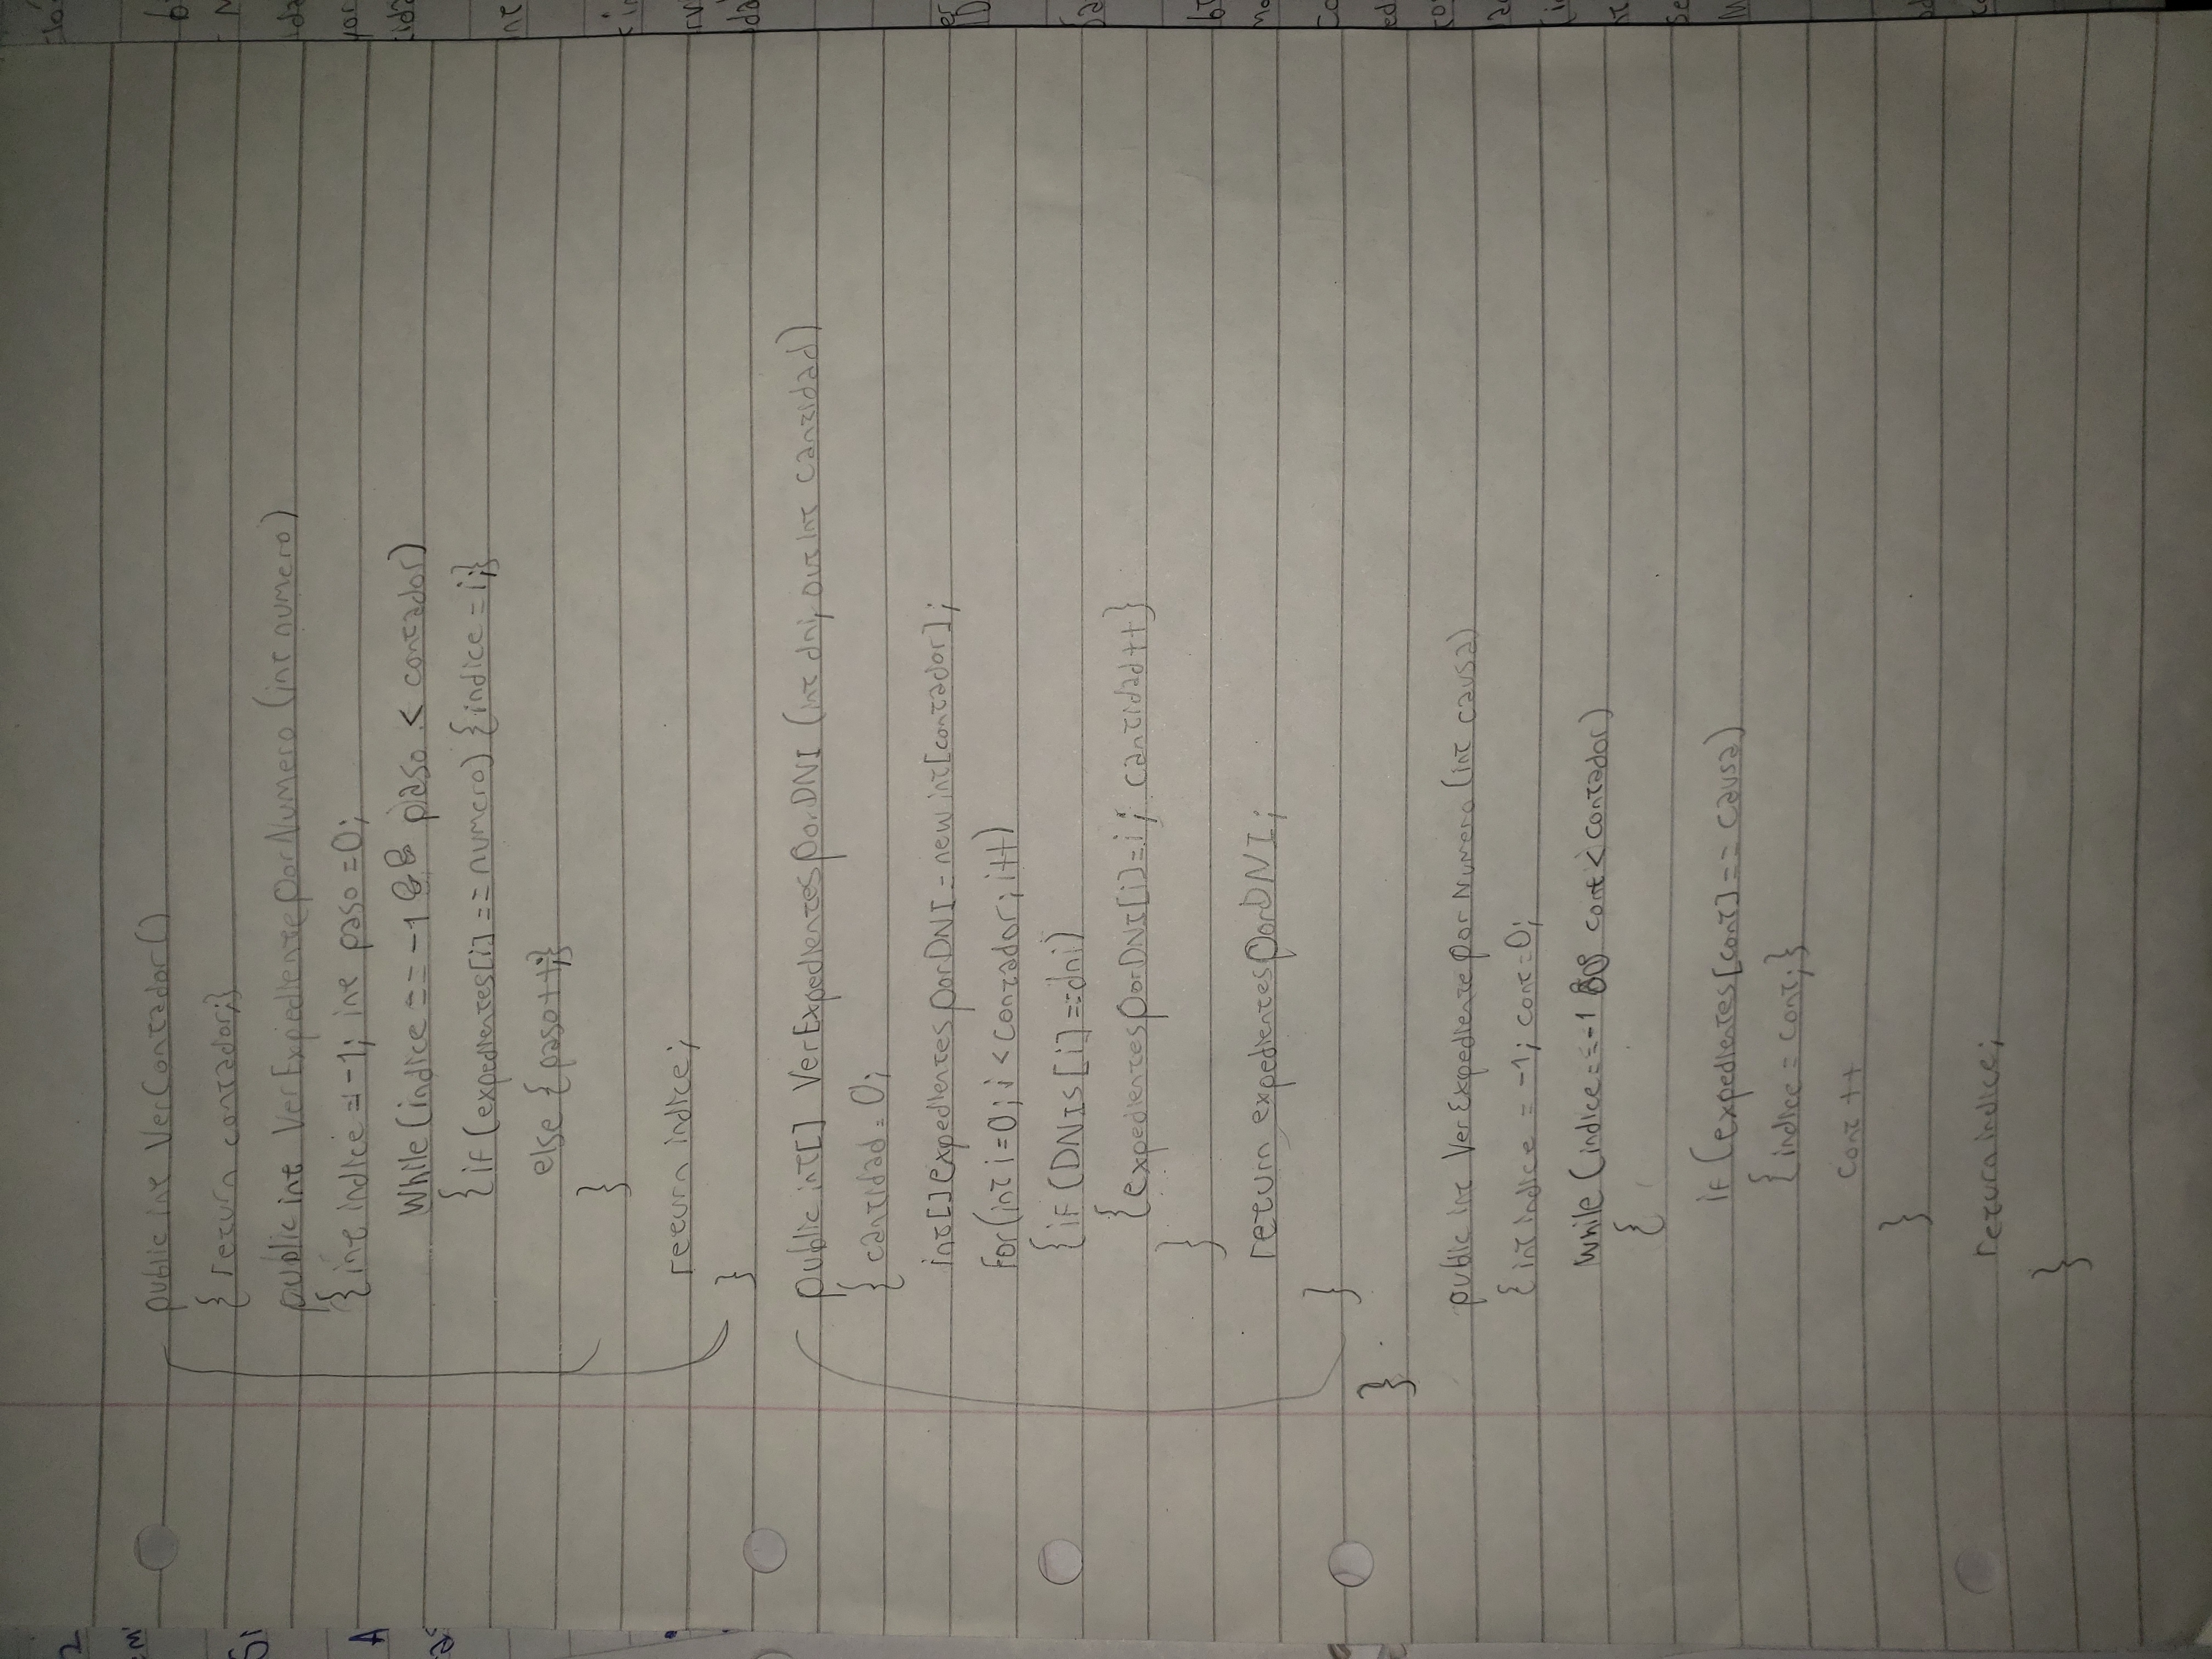 public int VerContador()
{ return contador;}
public int VerExpedientePorNumero (int numero)
{int indice = -1; int paso = 0;
While (indice == -1 && paso < contador)
{if (expedientes[i] == numero) {indice = i;}
else {paso++;}
}
return indice;
}
public int[] VerExpedientesPorDNI (int dni, out int cantidad)
{ cantidad = 0;
int[] expedientesPorDNI = new int[contador];
For(int i=0; i < contador; i++)
{if (DNIs[i] == dni)
{expedientesPorDNI[i]=i; cantidad++}
}
return expedientesPorDNI;
}
}
public int VerExpedientePorNumero (int causa)
{int indice = -1; cont=0;
While (indice == -1 && cont < contador)
{
if (expedientes[cont] == causa)
{indice = cont;}
cont ++
}
return indice;
}